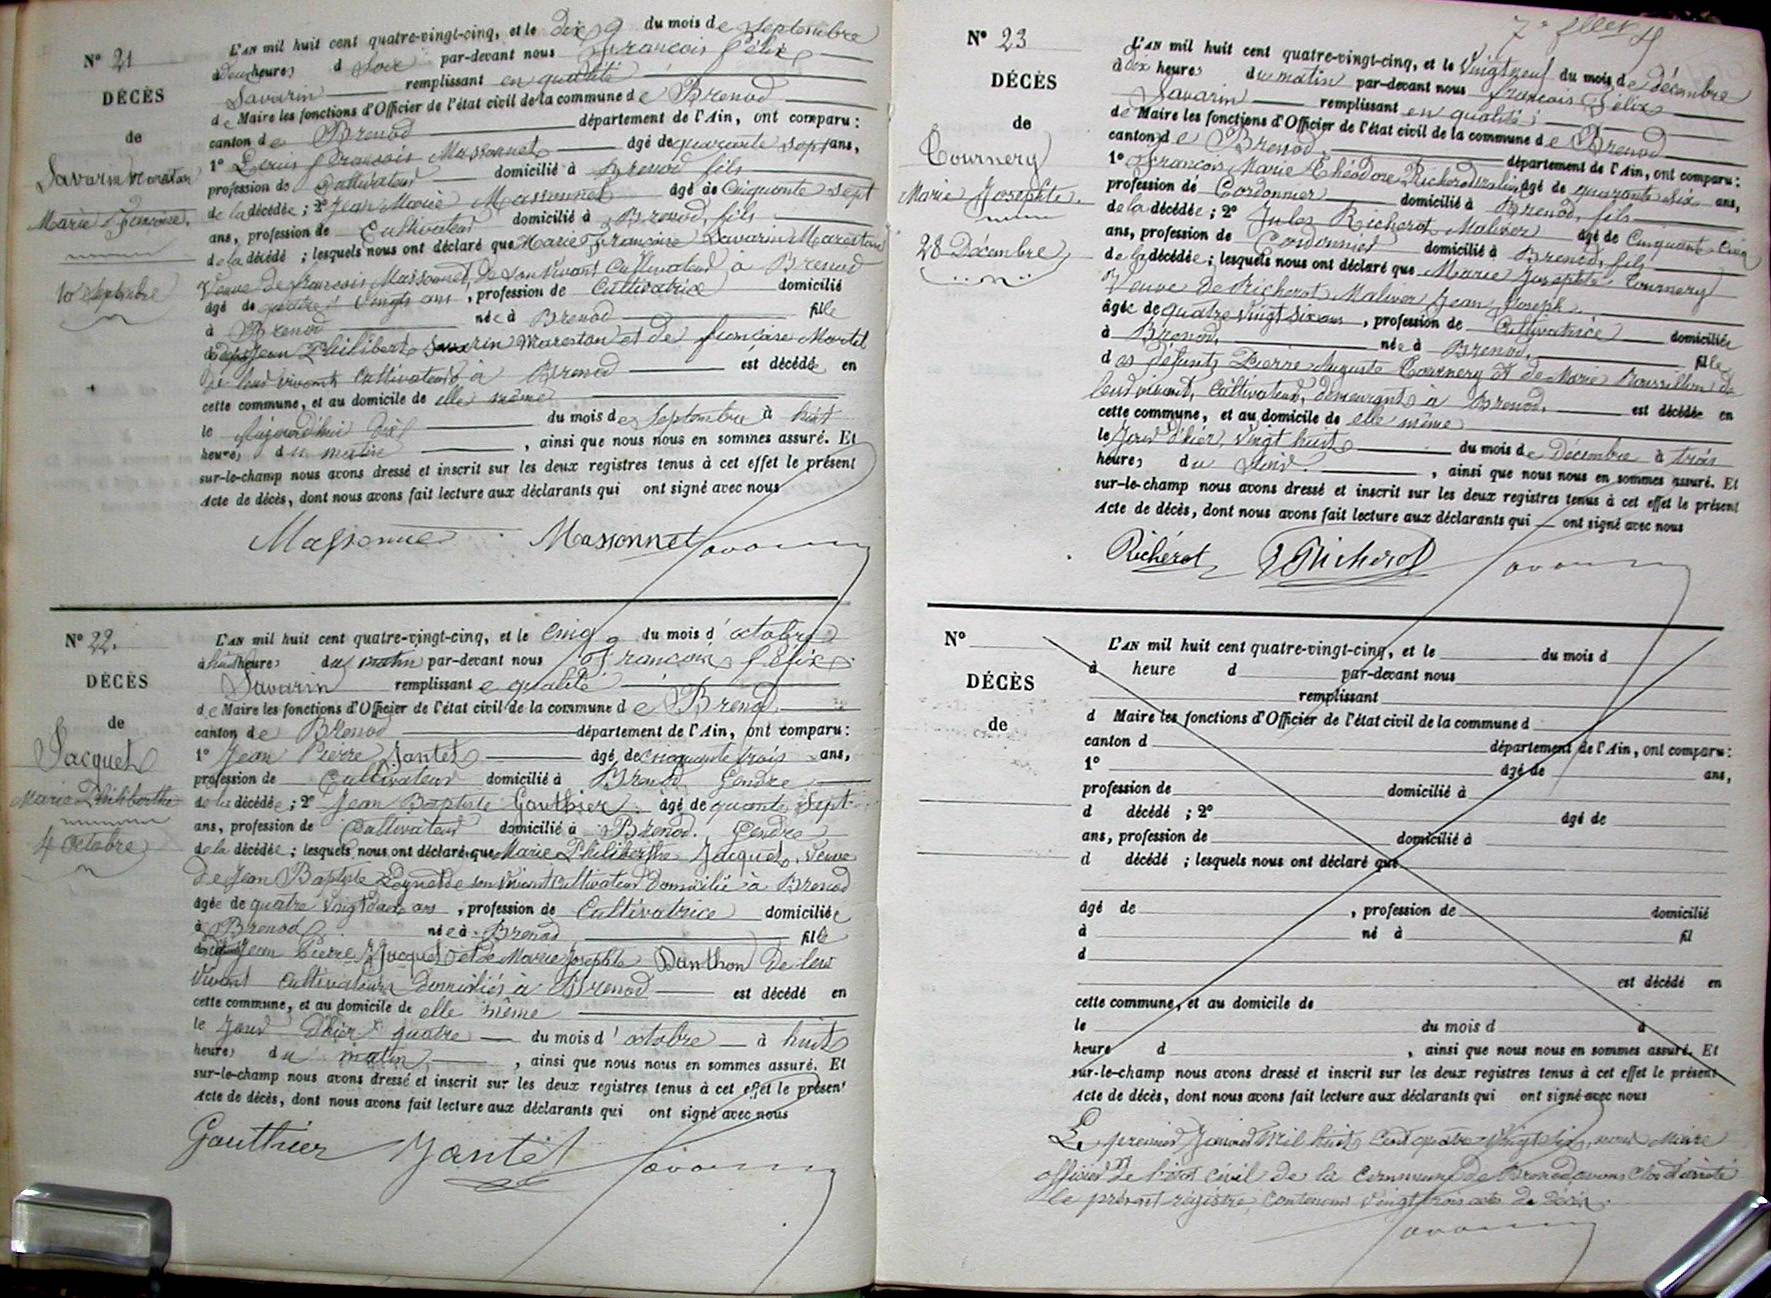 N° 21
DÉCÈS
de
Savarin Marestan
Marie Françoise.
10 Septembre
L'AN mil huit cent quatre-vingt-cinq, et le dix du mois de Septembre
à deux heures d soir par-devant nous François Félix
Savarin remplissant en qualité
de Maire les fonctions d'Officier de l'état civil de la commune de Brenod
canton de Brenod département de l'Ain, ont comparu :
1° Louis François Massonnet âgé de quarante sept ans,
profession de Cultivateur domicilié à Brenod fils
de la décédée ; 2° Jean Marie Massonnet âgé de Cinquante sept
ans, profession de Cultivateur domicilié à Brenod, fils
de la décédé ; lesquels nous ont déclaré que Marie Françoise Savarin Marestan
Veuve de françois Massonnet, de son vivant Cultivateur à Brenod
âgé de quatre vingts ans, profession de Cultivatrice domicilié
à Brenod née à Brenod fille
Jean Philibert Savarin Marestan et de françoise Martel
de leur vivant cultivateurs à Brenod est décédée en
cette commune, et au domicile de elle même
le Aujourd'hui dix du mois de Septembre à huit
heures du matin, ainsi que nous nous en sommes assuré. Et
sur-le-champ nous avons dressé et inscrit sur les deux registres tenus à cet effet le présent
Acte de décès, dont nous avons fait lecture aux déclarants qui ont signé avec nous
Massonnet Massonnet Savarin
N° 22.
DÉCÈS
de
Jacquet
Marie Philiberthe
4 Octobre
L'AN mil huit cent quatre-vingt-cinq, et le cinq du mois d'octobre
à huit heures du matin par-devant nous François félix
Savarin remplissant e qualité
de Maire les fonctions d'Officier de l'état civil de la commune de Brenod
canton de Brenod département de l'Ain, ont comparu :
1° Jean Pierre Jantet âgé de cinquante trois ans,
profession de Cultivateur domicilié à Brenod Gendre
de la décédée ; 2° Jean Baptiste Gauthier âgé de quante Sept
ans, profession de Cultivateur domicilié à Brenod. Gendre
de la décédée ; lesquels nous ont déclaré que Marie Philiberthe Jacquet, veuve
de Jean Baptiste de son vivant cultivateur domicilié à Brenod
âgée de quatre vingt ans, profession de Cultivatrice domiciliée
à Brenod née à Brenod fille
Jean Pierre Jacquet et de Marie Josephte Danthon de leur
vivant cultivateurs domiciliés à Brenod est décédé en
cette commune, et au domicile de elle même
le Jour d'hier quatre du mois d'octobre à huit
heures du matin, ainsi que nous nous en sommes assuré. Et
sur-le-champ nous avons dressé et inscrit sur les deux registres tenus à cet effet le présent
Acte de décès, dont nous avons fait lecture aux déclarants qui ont signé avec nous
Gauthier Jantet Savarin
N° 23
DÉCÈS
de
Tournery
Marie Josephte.
28 Décembre
L'AN mil huit cent quatre-vingt-cinq, et le Vingt neuf du mois de décembre
à dix heures du matin par-devant nous françois Félix
Savarin remplissant en qualité
de Maire les fonctions d'Officier de l'état civil de la commune de Brenod
canton de Brenod département de l'Ain, ont comparu :
1° François Marie Théodore Richerot âgé de quarante six ans,
profession de Cordonnier domicilié à Brenod, fils
de la décédée ; 2° Jules Richerot Maliver âgé de Cinquante Cinq
ans, profession de Cordonnier domicilié à Brenod, fils
de la décédée ; lesquels nous ont déclaré que Marie Josephte Tournery
Veuve de Richerot Maliver Jean Joseph
âgée de quatre vingt six ans, profession de Cultivatrice domiciliée
à Brenod, née à Brenod, fille
des défunts Pierre Auguste Tournery et de Marie Roussillon de
leur vivant, cultivateurs, demeurant à Brenod, est décédée en
cette commune, et au domicile de elle même
le Jour d'hier, vingt huit du mois de Décembre à trois
heures du soir, ainsi que nous nous en sommes assuré. Et
sur-le-champ nous avons dressé et inscrit sur les deux registres tenus à cet effet le présent
Acte de décès, dont nous avons fait lecture aux déclarants qui ont signé avec nous
Richerot J Richerot Savarin
N°
DÉCÈS
de
L'AN mil huit cent quatre-vingt-cinq, et le du mois d
à heure d par-devant nous
remplissant
d Maire les fonctions d'Officier de l'état civil de la commune d
canton d département de l'Ain, ont comparu :
1° âgé de ans,
profession de domicilié à
d décédé ; 2° âgé de
ans, profession de domicilié à
d décédé ; lesquels nous ont déclaré que
âgé de , profession de domicilié
à né à fil
d
est décédé en
cette commune, et au domicile de
le du mois d à
heure d , ainsi que nous nous en sommes assuré. Et
sur-le-champ nous avons dressé et inscrit sur les deux registres tenus à cet effet le présent
Acte de décès, dont nous avons fait lecture aux déclarants qui ont signé avec nous
Le premier Janvier Mil huit cent quatre vingt six, nous Maire
officier de l'état civil de la commune de Brenod avons clos et arrêté
le présent régistre, contenant vingt trois actes de Décès.
Savarin